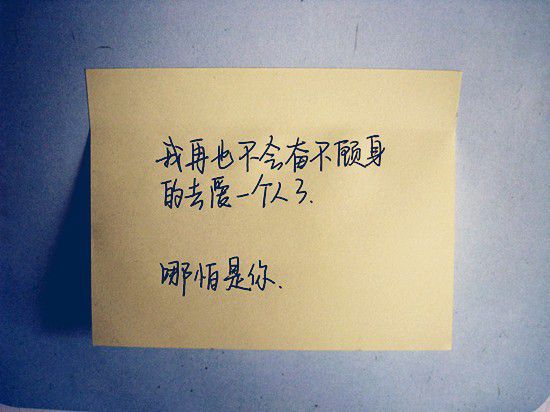 我再也不会奋不顾身
的去爱一个人了.
哪怕是你.